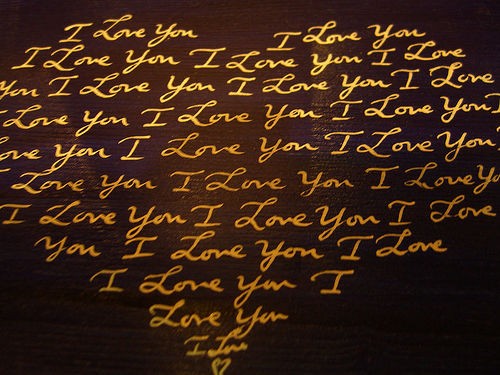 I Love You I Love You
I Love You I Love You I Love
You I Love You I Love You I Love
Love You I Love You I Love You I
Love You I Love You I Love You
I Love You I Love You I Love You
I Love You I Love You I Love
You I Love You I Love
I Love You I
Love You
I Love